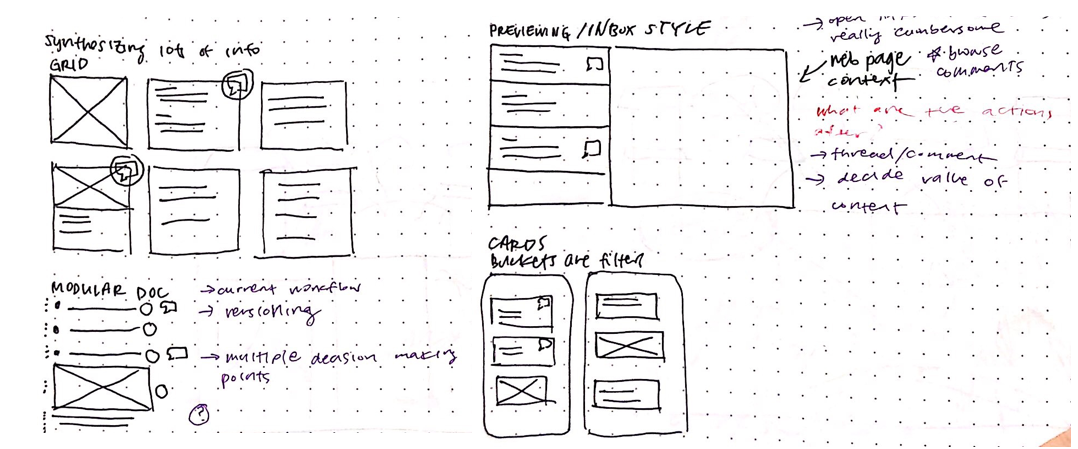 synthesizing lots of info
GRID
MODULAR DOC
→ current workflow
→ versioning
→ multiple decision making
points
?
PREVIEWING / INBOX STYLE
→ open
really cumbersome
web page
context
* browse
comments
what are the actions
→ thread/comment
→ decide value of
content
CARDS
Buckets are filter